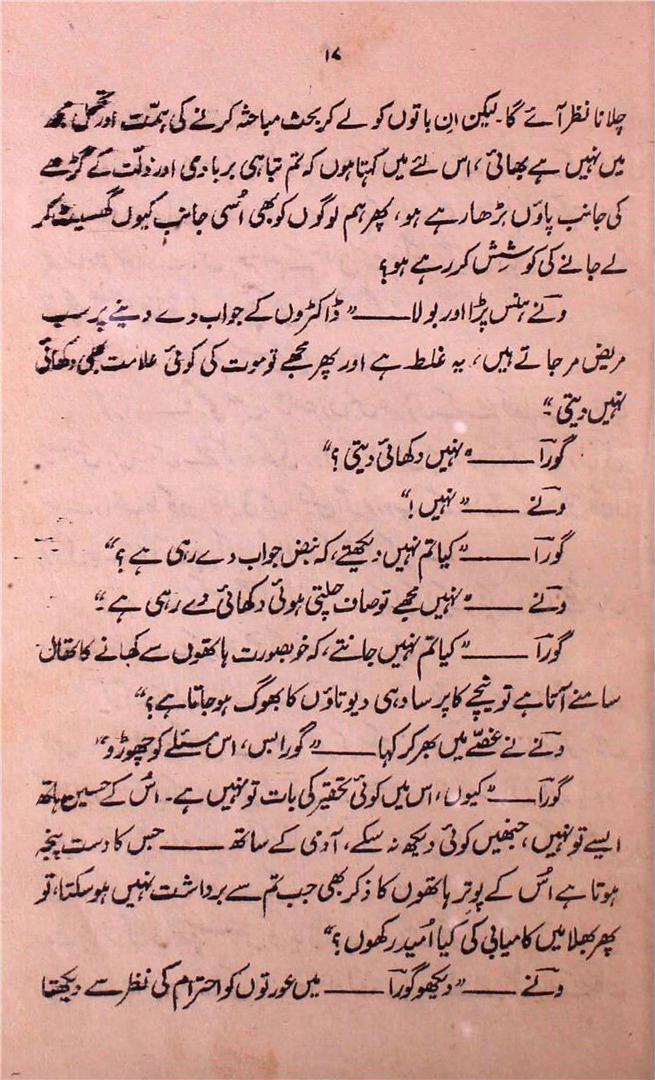 ۱۷
چلانا نظر آئے گا۔ لیکن ان باتوں کو لے کر بحث مباحثہ کرنے کی ہمّت اور تحمّل مجھ
میں نہیں ہے بھائی، اس لئے میں کہتا ہوں کہ تم تباہی بربادی اور ذلّت کے گڑھے
کی جانب پاؤں بڑھا رہے ہو، پھر ہم لوگوں کو بھی اُسی جانب کیوں گھسیٹ کر
لے جانے کی کوشش کر رہے ہو؟
ونے ہنس پڑا اور بولا —— "ڈاکٹروں کے جواب دے دینے پر سب
مریض مر جاتے ہیں، یہ غلط ہے اور پھر مجھے تو موت کی کوئی علامت بھی دکھائی
نہیں دیتی۔"
گورآ —— "نہیں دکھائی دیتی؟"
ونے —— "نہیں!"
گورآ —— "کیا تم نہیں دیکھتے، کہ نبض جواب دے رہی ہے؟"
ونے —— "نہیں مجھے تو صاف چلتی ہوئی دکھائی دے رہی ہے۔"
گورآ —— "کیا تم نہیں جانتے، کہ خوبصورت ہاتھوں سے کھانے کا تھال
سامنے آتا ہے تو نیچے کا پرساد ہی دیوتاؤں کا بھوگ ہو جاتا ہے؟"
ونے نے غصّے میں بھر کر کہا —— "گورا بس، اس مسئلے کو چھوڑو"
گورآ —— "کیوں، اس میں کوئی تحقیر کی بات تو نہیں ہے۔ اُس کے حسین ہاتھ
ایسے تو نہیں، جنھیں کوئی دیکھ نہ سکے، آدمی کے ساتھ —— جس کا دست پنجہ
ہوتا ہے اُس کے پوتر ہاتھوں کا ذکر بھی جب تم سے برداشت نہیں ہو سکتا، تو
پھر بھلا میں کامیابی کی کیا اُمید رکھوں؟"
ونے —— "دیکھو گورآ —— میں عورتوں کو احترام کی نظر سے دیکھتا